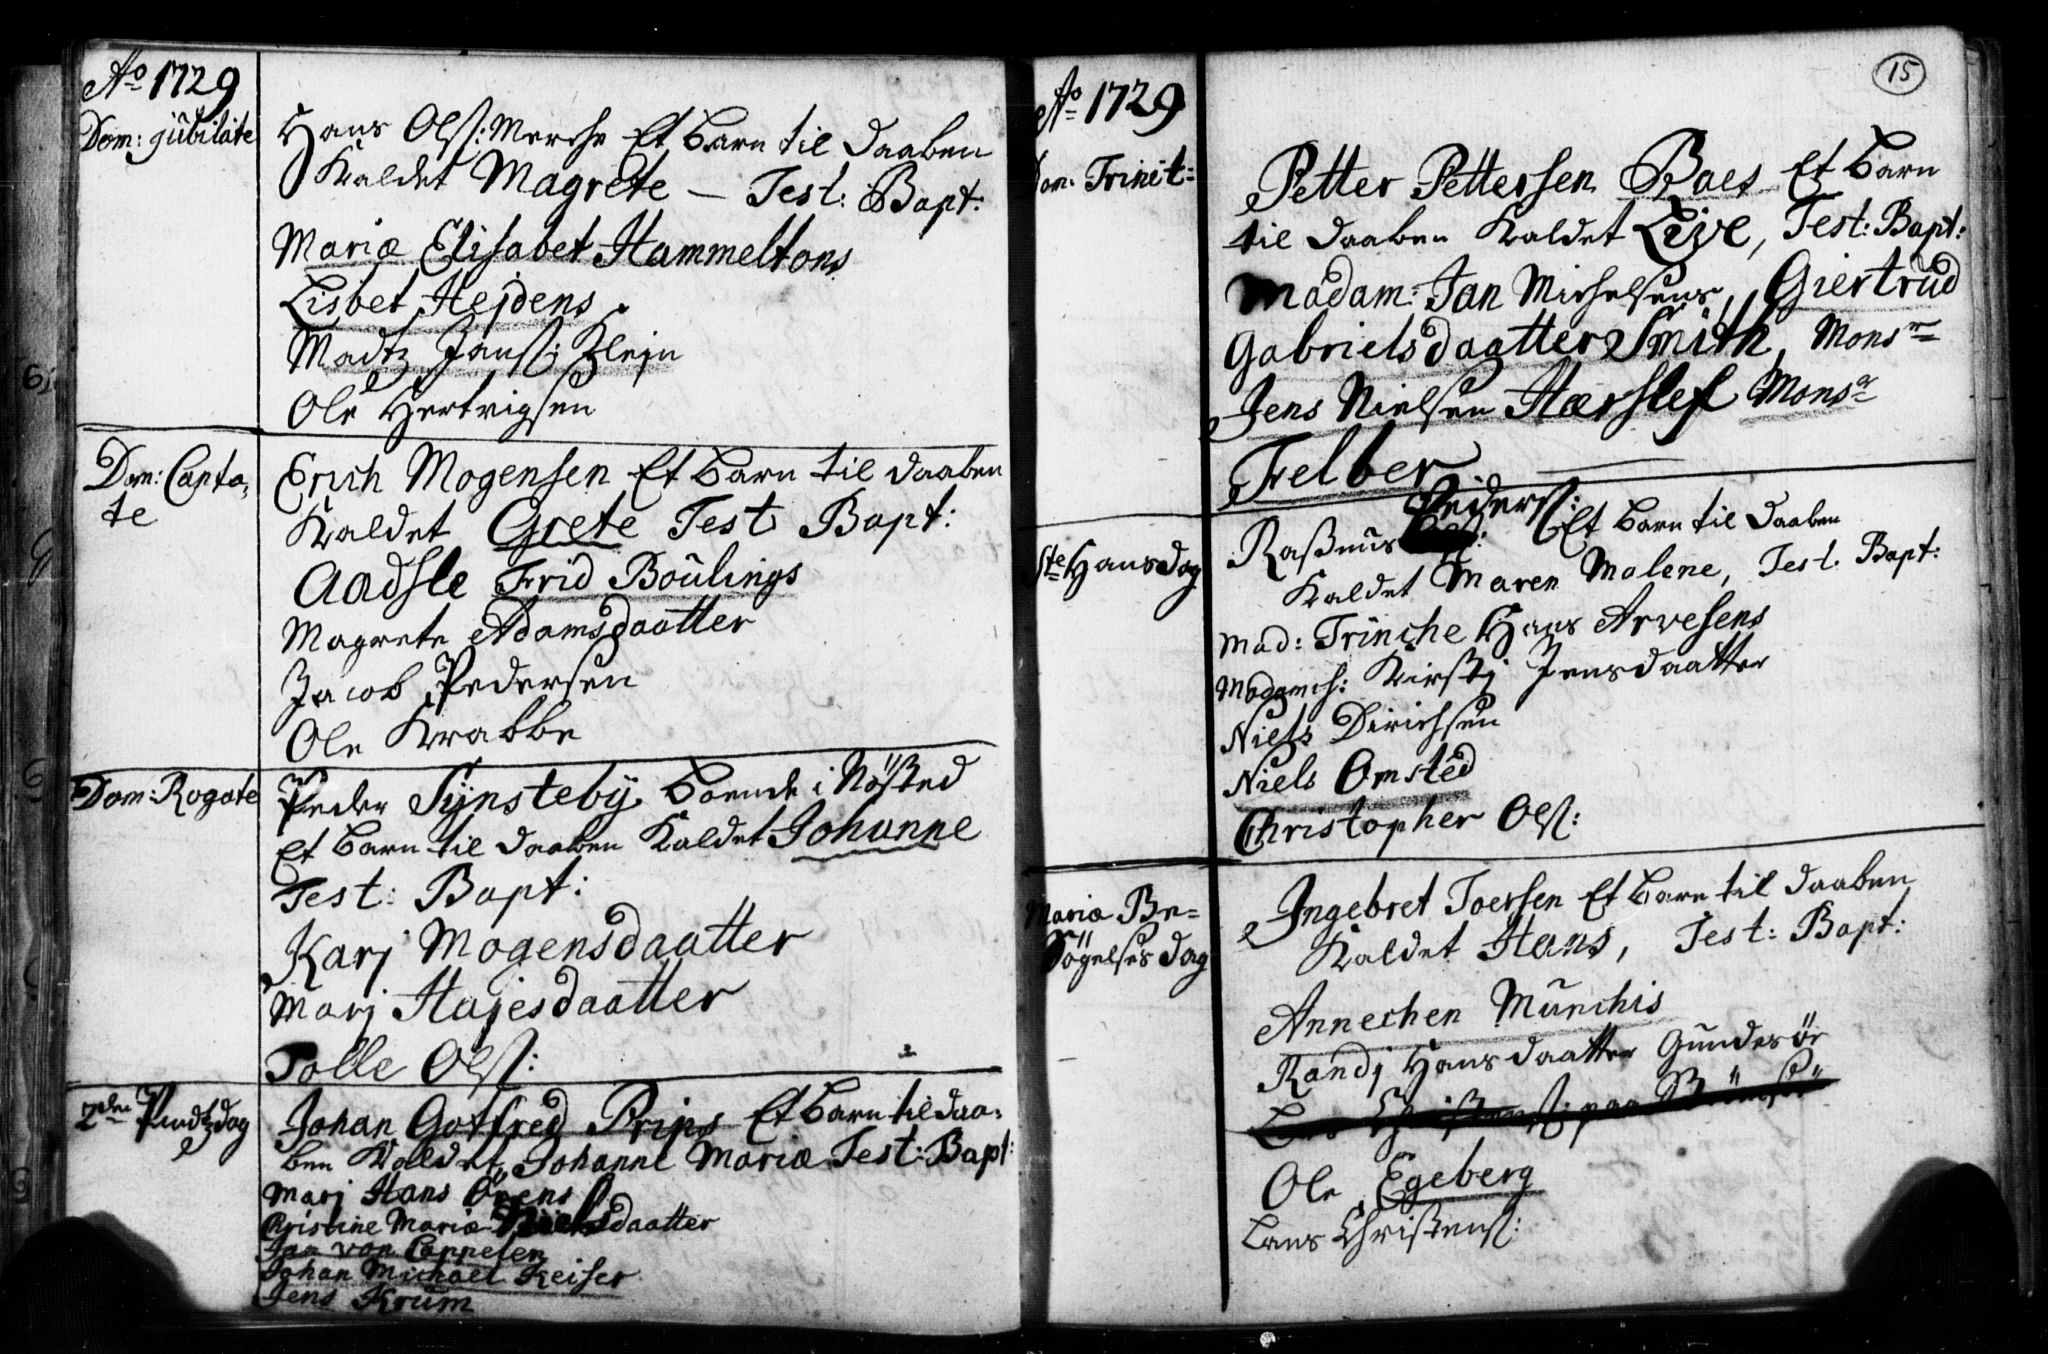 Ao 1729
Dom: Jubilate
Hans Olss: Merche Et Barn til Daaben
Kaldet Magrete – Test: Bapt:
Mariæ Elisabet Hammeltons
Lisbet Hejdens
Madtz Janss: Klejn
Ole Hertvigsen
Dom: Canta,
te
Erich Mogensen Et Barn til Daaben
Kaldet Grete Test Bapt:
Aadsle Frid Boulings
Magrete Adamsdaatter
Jacob Pedersen
Ole Krabbe
Dom: Rogate
Peder Synsteby boende i Nösted
Et Barn til Daaben Kaldet Johanne
Test: Bapt:
Karj Mogensdaatter
Marj Hajesdaatter
Tolle Olss:
2den Pindtzdag
Johan Gotfred Prips Et Barn til Daa,
ben Kaldet Johanne Mariæ Test: Bapt:
Marj Hans Örens
Christine Mariæ Nielsdaatter
Jan von Cappelen
Johan Michael Keiser
Jens Krum
15
Ao 1729
Dom: Trinit=
Petter Pettersen Baes Et Barn
til Daaben Kaldet Live, Test: Bapt:
Madam: Jan Michelsens, Giertrud
Gabrielsdaatter Smith, Monsr
Jens Nielsen Hærslef Monsr
Felber
Ste Hansdag
Rasmus Pederss: Et Barn til Daaben
Kaldet Maren Malene, Test: Bapt:
Mad: Trinche Hans Arvesens
Madamch: Kirstj Jensdaatter
Niels Dirichsen
Niels Omsted
Christopher Olss:
Mariæ Be=
sögelses Dag
Ingebret Toersen Et Barn til Daaben
Kaldet Hans, Test: Bapt:
Annechen Munchis
Randj Hansdaatter Gundesör
Lars Christenss: paa
Ole Egeberg
Lars Christenss: